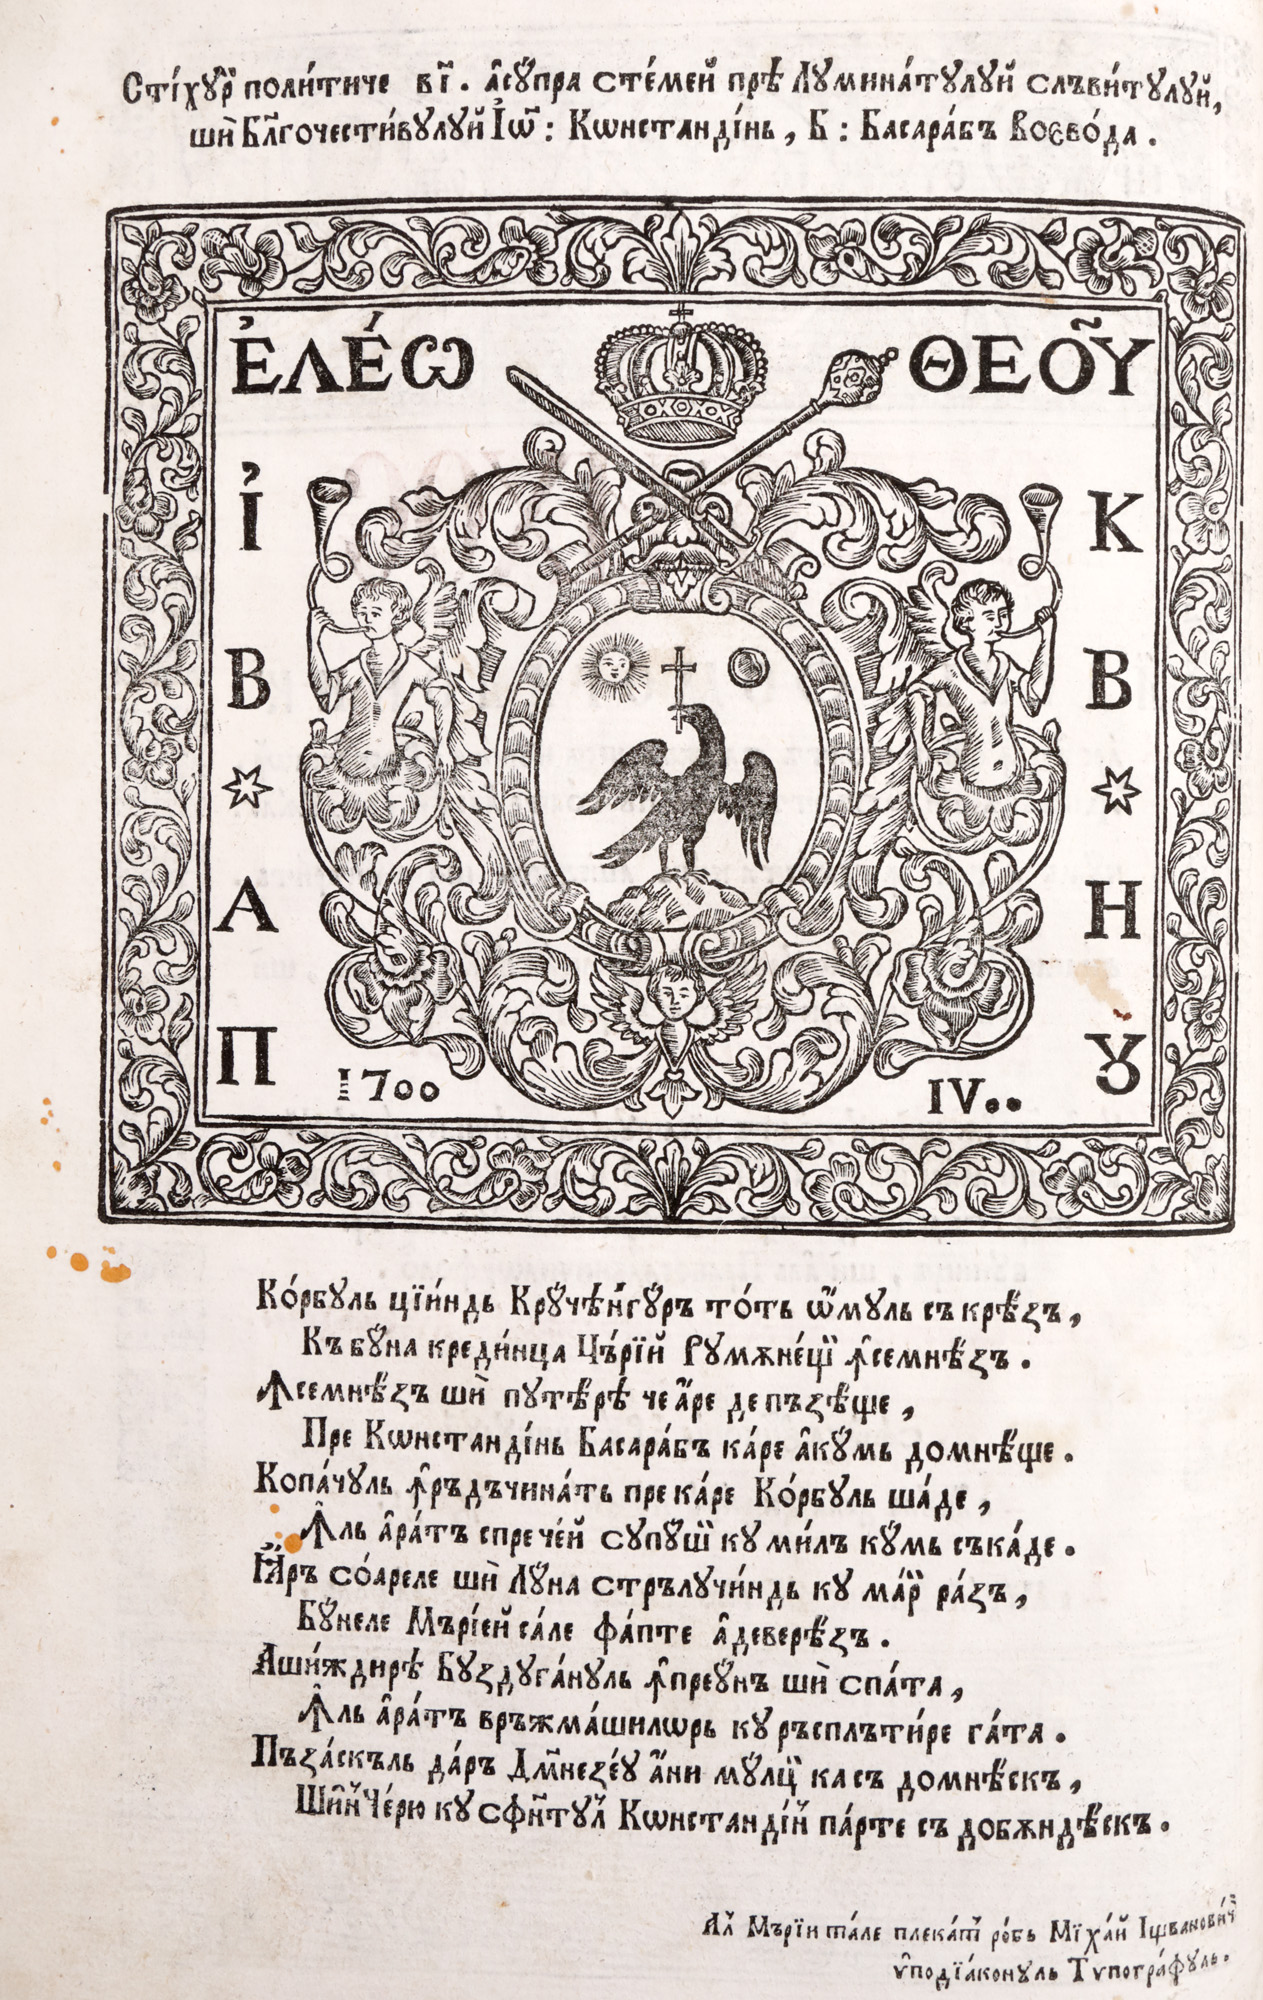 Стїхурй поли́тиче вї. а҆су́пра сте́мей прѣ Лумина́тулуй слъви́тулуй,
шѝ Бл҃гочести́вулуй І҆ѡ҃: Кѡнстанді́нь, Б: Басара́бъ Воєво́да.
ἘΛΈΩ ΘΕΟΥ͂
Ἰ Κ
Β Β
Α Η
Π Ȣ
1700 IV..
Ко́рбуль цїи́ндь Кру́чѣ҆нгу́ръ то́ть ѡ҆́муль съ крѣ́ꙁъ,
Къ бу́на креди́нца Ць́рїй Румѫне́щїй ꙟ҆семнѣ́ꙁъ.
Ꙟ҆семнѣ́ꙁъ шѝ путѣ́рѣ че а҆́ре де пъꙁѣ́ще,
Пре Кѡнстанді́нь Басара́бъ ка́ре а҆ку́мь домнѣ́ще.
Копа́чуль ꙟ҆ръдъчина́ть пре ка́ре Ко́рбуль ша́де,
Ꙟ҆ль а҆ра́тъ спре че́й супу́шй ку ми́лъ ку́мь съ ка́де.
Ꙗ҆́ръ со́ареле шѝ Лу́на стрълучи́ндь ку ма́рй ра́ꙁъ,
Бу́неле Мърі́ей са́ле фа́пте а҆деверѣ́ꙁъ.
Аши́ждирѣ Буꙁдуга́нуль ꙟ҆преу́нъ шѝ спа́та,
Ꙟ҆ль а҆ра́тъ връжма́шилѡрь ку ръсплъти́ре га́та.
Пъꙁа́скъль да́ръ Дм҃неꙁе́у а҆́ни му́лцй ка съ домнѣ́скъ,
Шиꙟ҆ Че́рю ку сфн҃тул Кѡнстанді́н па́рте съ добѫндѣ́скъ.
Ал Мърїи та́ле плека́т ро́бь Мїха́й Іщванови́ч
ѵ҆подїа́конуль Тѵпогра́фуль.